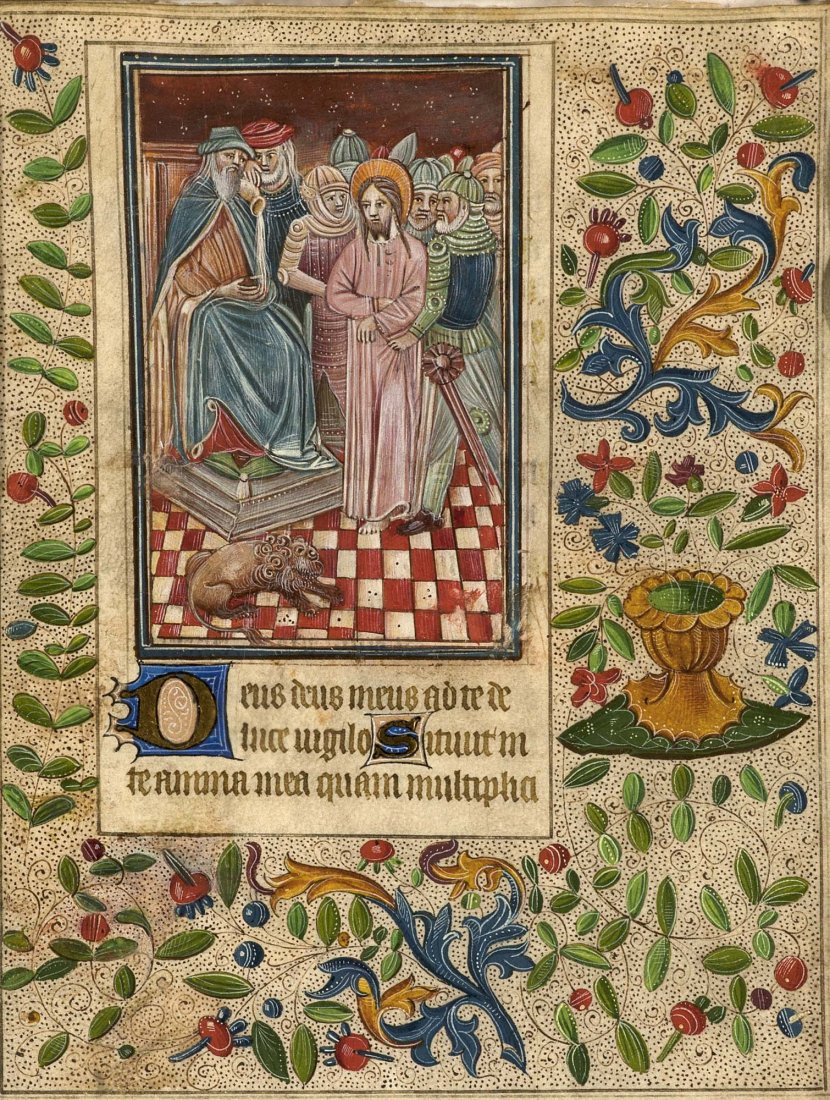 Deus deus meus ad te de
luce vigilo Sitivit in
te anima mea quam multiplici